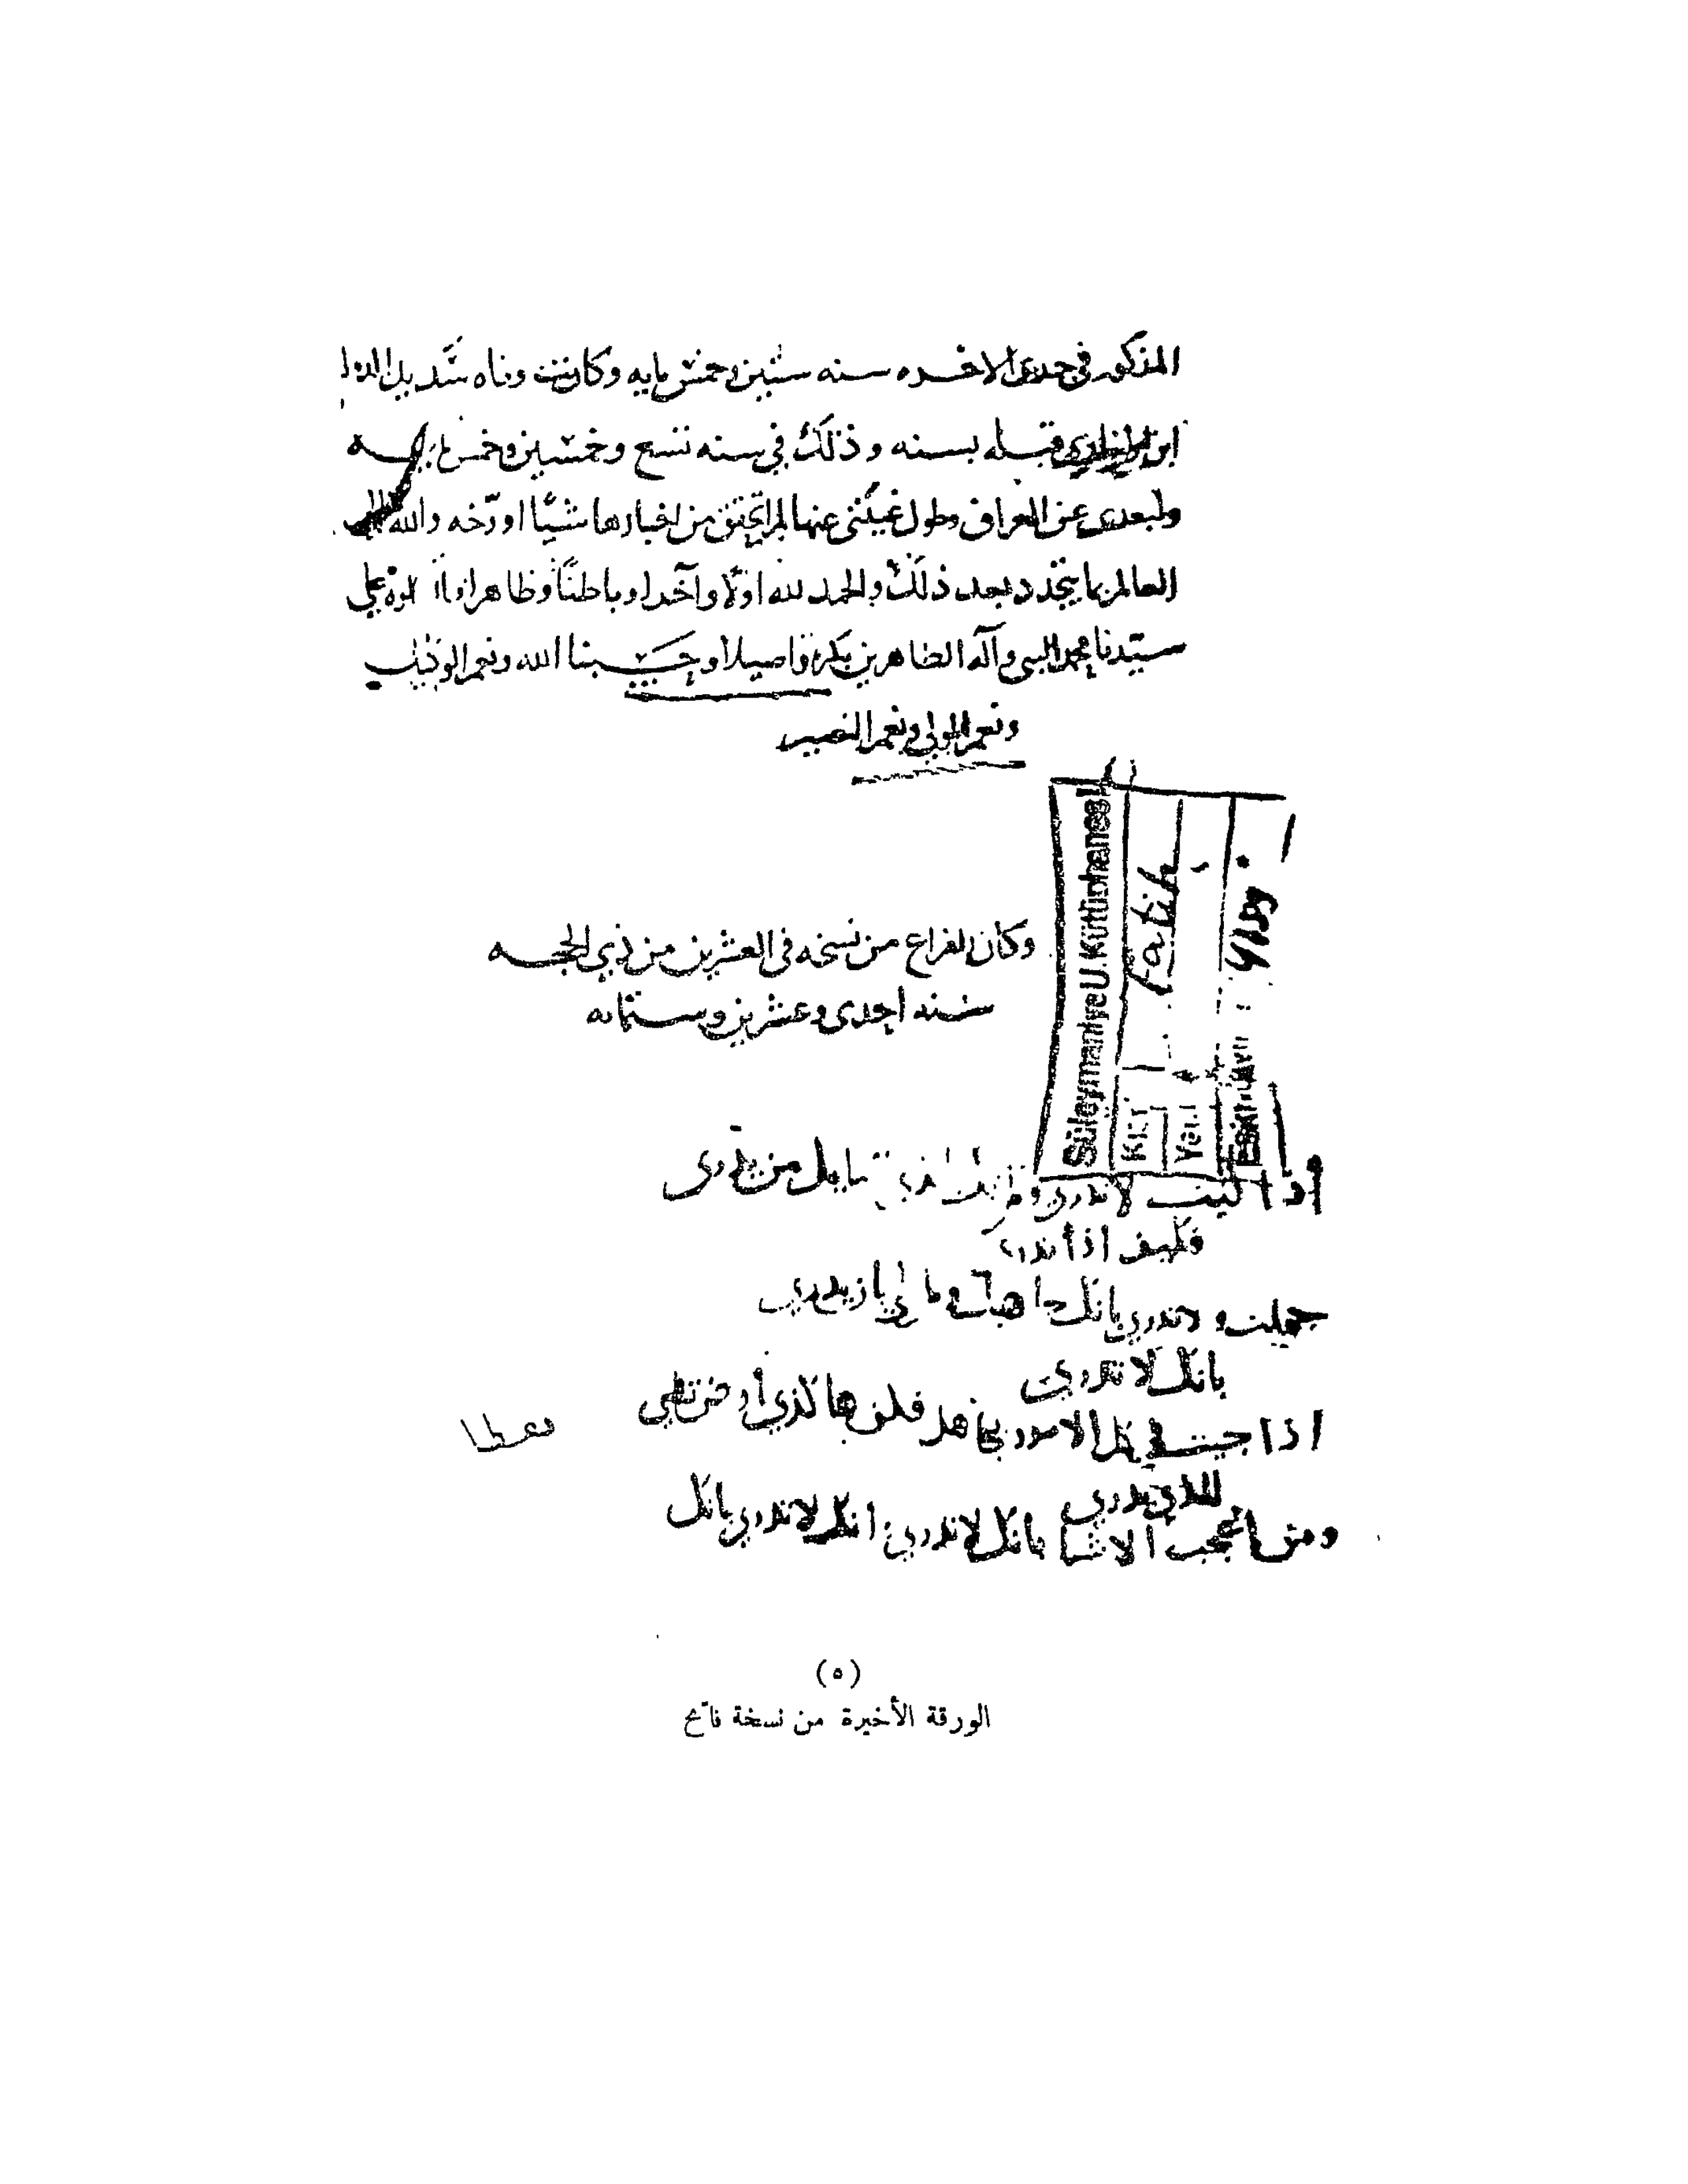 المذكور في جمدى الاخره سنه ستين وخمس مايه وكانت وفاه سديد الدوله
ابن الانباري قبله بسنه وذلك في سنه تسع وخمسين وخمس مايه
ولبعدي عن العراق وطول غيبتي عنها لم اتحقق من اخبارها شيئا اورخه والله
العالم بما يتجدد بعد ذلك والحمد لله اولا وآخرا وباطنا وظاهرا على
سيدنا محمد النبي وآله الطاهرين بكرة واصيلا وحسبنا الله ونعم الوكيل
ونعم المولى ونعم النصير
وكان الفراغ من نسخه في العشرين من ذي الحجه
سنه احدى وعشرين وستمائه
Süleymaniye U. Kütüphanesi
Fatih
اذا كنت لا تدري من يدري
فكيف اذا تدري
جهلت ولا تدري بانك جاهل
بانك لا تدري
اذا جيت في كل الامور
للذي يدري
ومن اعجب الاشيا بانك لا تدري انك لا تدري بانك
(٥)
الورقة الأخيرة من نسخة فاتح